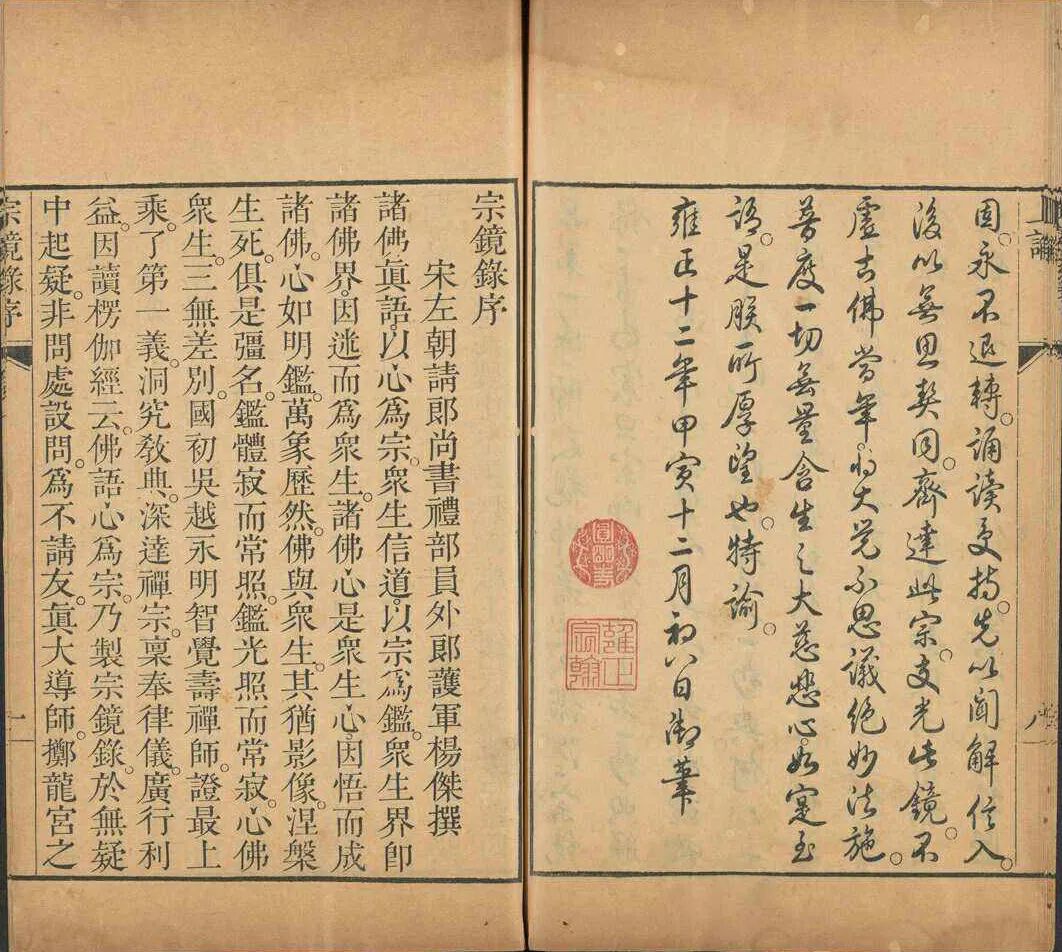 上諭
固。永不退轉。誦讀受持。先以聞解信入。
後以無思契同。齊達此宗。交光此鏡。不
虛古佛當年。將大覺不思議絕妙法施。
普度一切無量含生之大慈悲心。如寔至
語。是朕所厚望也。特諭。
雍正十二年甲寅十二月初八日御筆
圓明
雍正
宸翰
宗鏡錄序
宋左朝請郎尚書禮部員外郎護軍楊傑撰
諸佛眞語。以心爲宗。衆生信道。以宗爲鑑。衆生界卽
諸佛界。因迷而爲衆生。諸佛心是衆生心。因悟而成
諸佛。心如明鑑。萬象歷然。佛與衆生。其猶影像。涅槃
生死。俱是彊名。鑑體寂而常照。鑑光照而常寂。心佛
衆生。三無差別。國初吳越永明智覺壽禪師。證最上
乘。了第一義。洞究敎典。深達禪宗。稟奉律儀。廣行利
益。因讀楞伽經云。佛語心爲宗。乃製宗鏡錄。於無疑
中起疑。非問處設問。爲不請友。眞大導師。擲龍宮之
宗鏡錄序
一